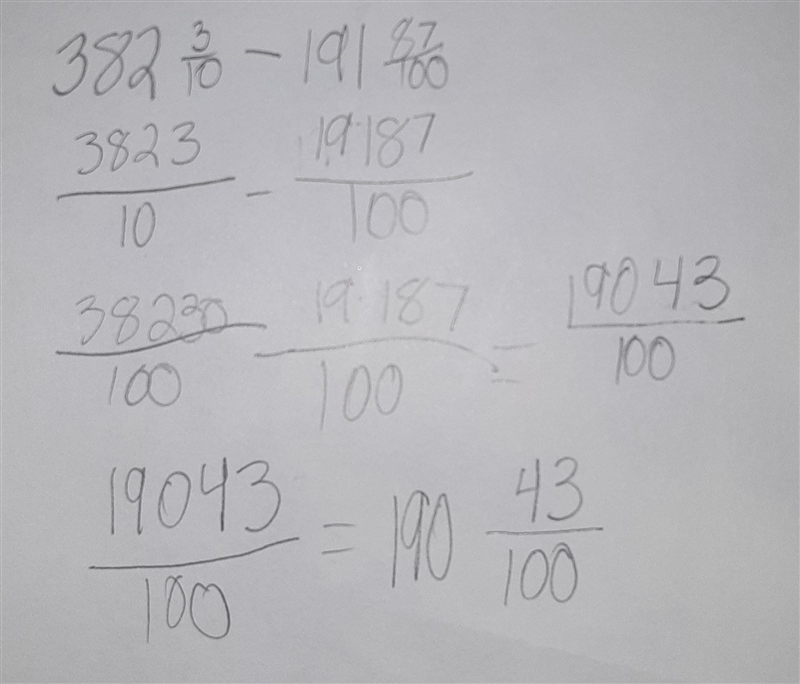 382 3/10 - 191 87/100
3823/10 - 19187/100
38230/100 - 19187/100 = 19043/100
19043/100 = 190 43/100